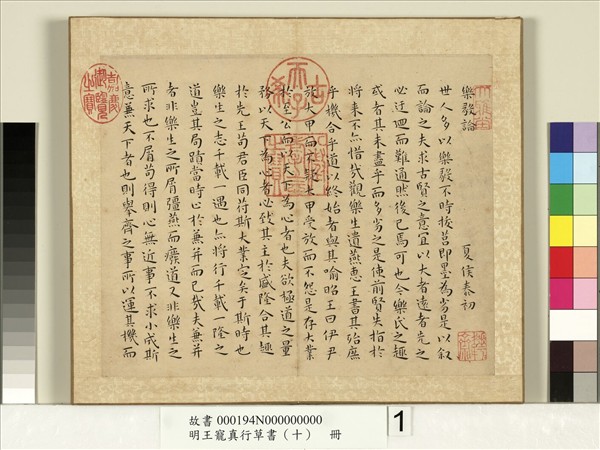 樂毅論
夏侯泰初
世人多以樂毅不時拔莒即墨為劣是以叙
而論之夫求古賢之意宜以大者遠者先之
必迂迴而難通然後已焉可也今樂氏之趣
或者其未盡乎而多劣之是使前賢失指於
將来不亦惜哉觀樂生遺燕惠王書其殆庶
乎機合乎道以終始者與其喻昭王曰伊尹
放大甲而不疑大甲受放而不怨是存大業
於至公而以天下為心者也夫欲極道之量
務以天下為心者必致其主於盛隆合其趣
於先王苟君臣同符斯大業定矣于斯時也
樂生之志千載一遇也亦將行千載一隆之
道豈其局蹟當時止於兼并而已哉夫兼并
者非樂生之所屑彊燕而癈道又非樂生之
所求也不屑苟得則心無近事不求小成斯
意兼天下者也則舉齊之事所以運其機而
古希天子
嘉慶御覽之寶
故書 000194N000000000
明王寵真行草書（十） 冊
1